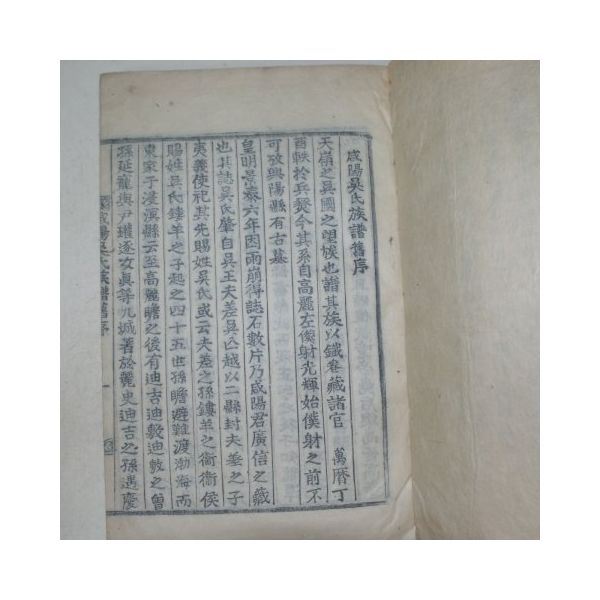 咸陽吳氏族譜舊序
天崩之吳國之望族也譜其族以鐵卷藏諸官 萬曆丁
酉軼於兵燹今其系自高麗左僕射光輝始僕射之前不
可攷興陽縣有古墓
皇明景泰六年因雨崩得誌石數片乃咸陽君廣信之藏
也其誌吳氏肇自吳王夫差吳亡越以二縣封夫差之子
夷義使祀其先賜姓吳氏或云夫差之孫鏤羊之衛衛侯
賜姓吳氏鏤羊之子起之四十五世孫瞻避難渡渤海而
東家于浸溟縣云至高麗瞻之後有迪吉迪敷迪敦之曾
孫延寵與尹瓘逐女眞等九城著於麗史迪吉之孫遇慶
咸陽吳氏族譜舊序 一